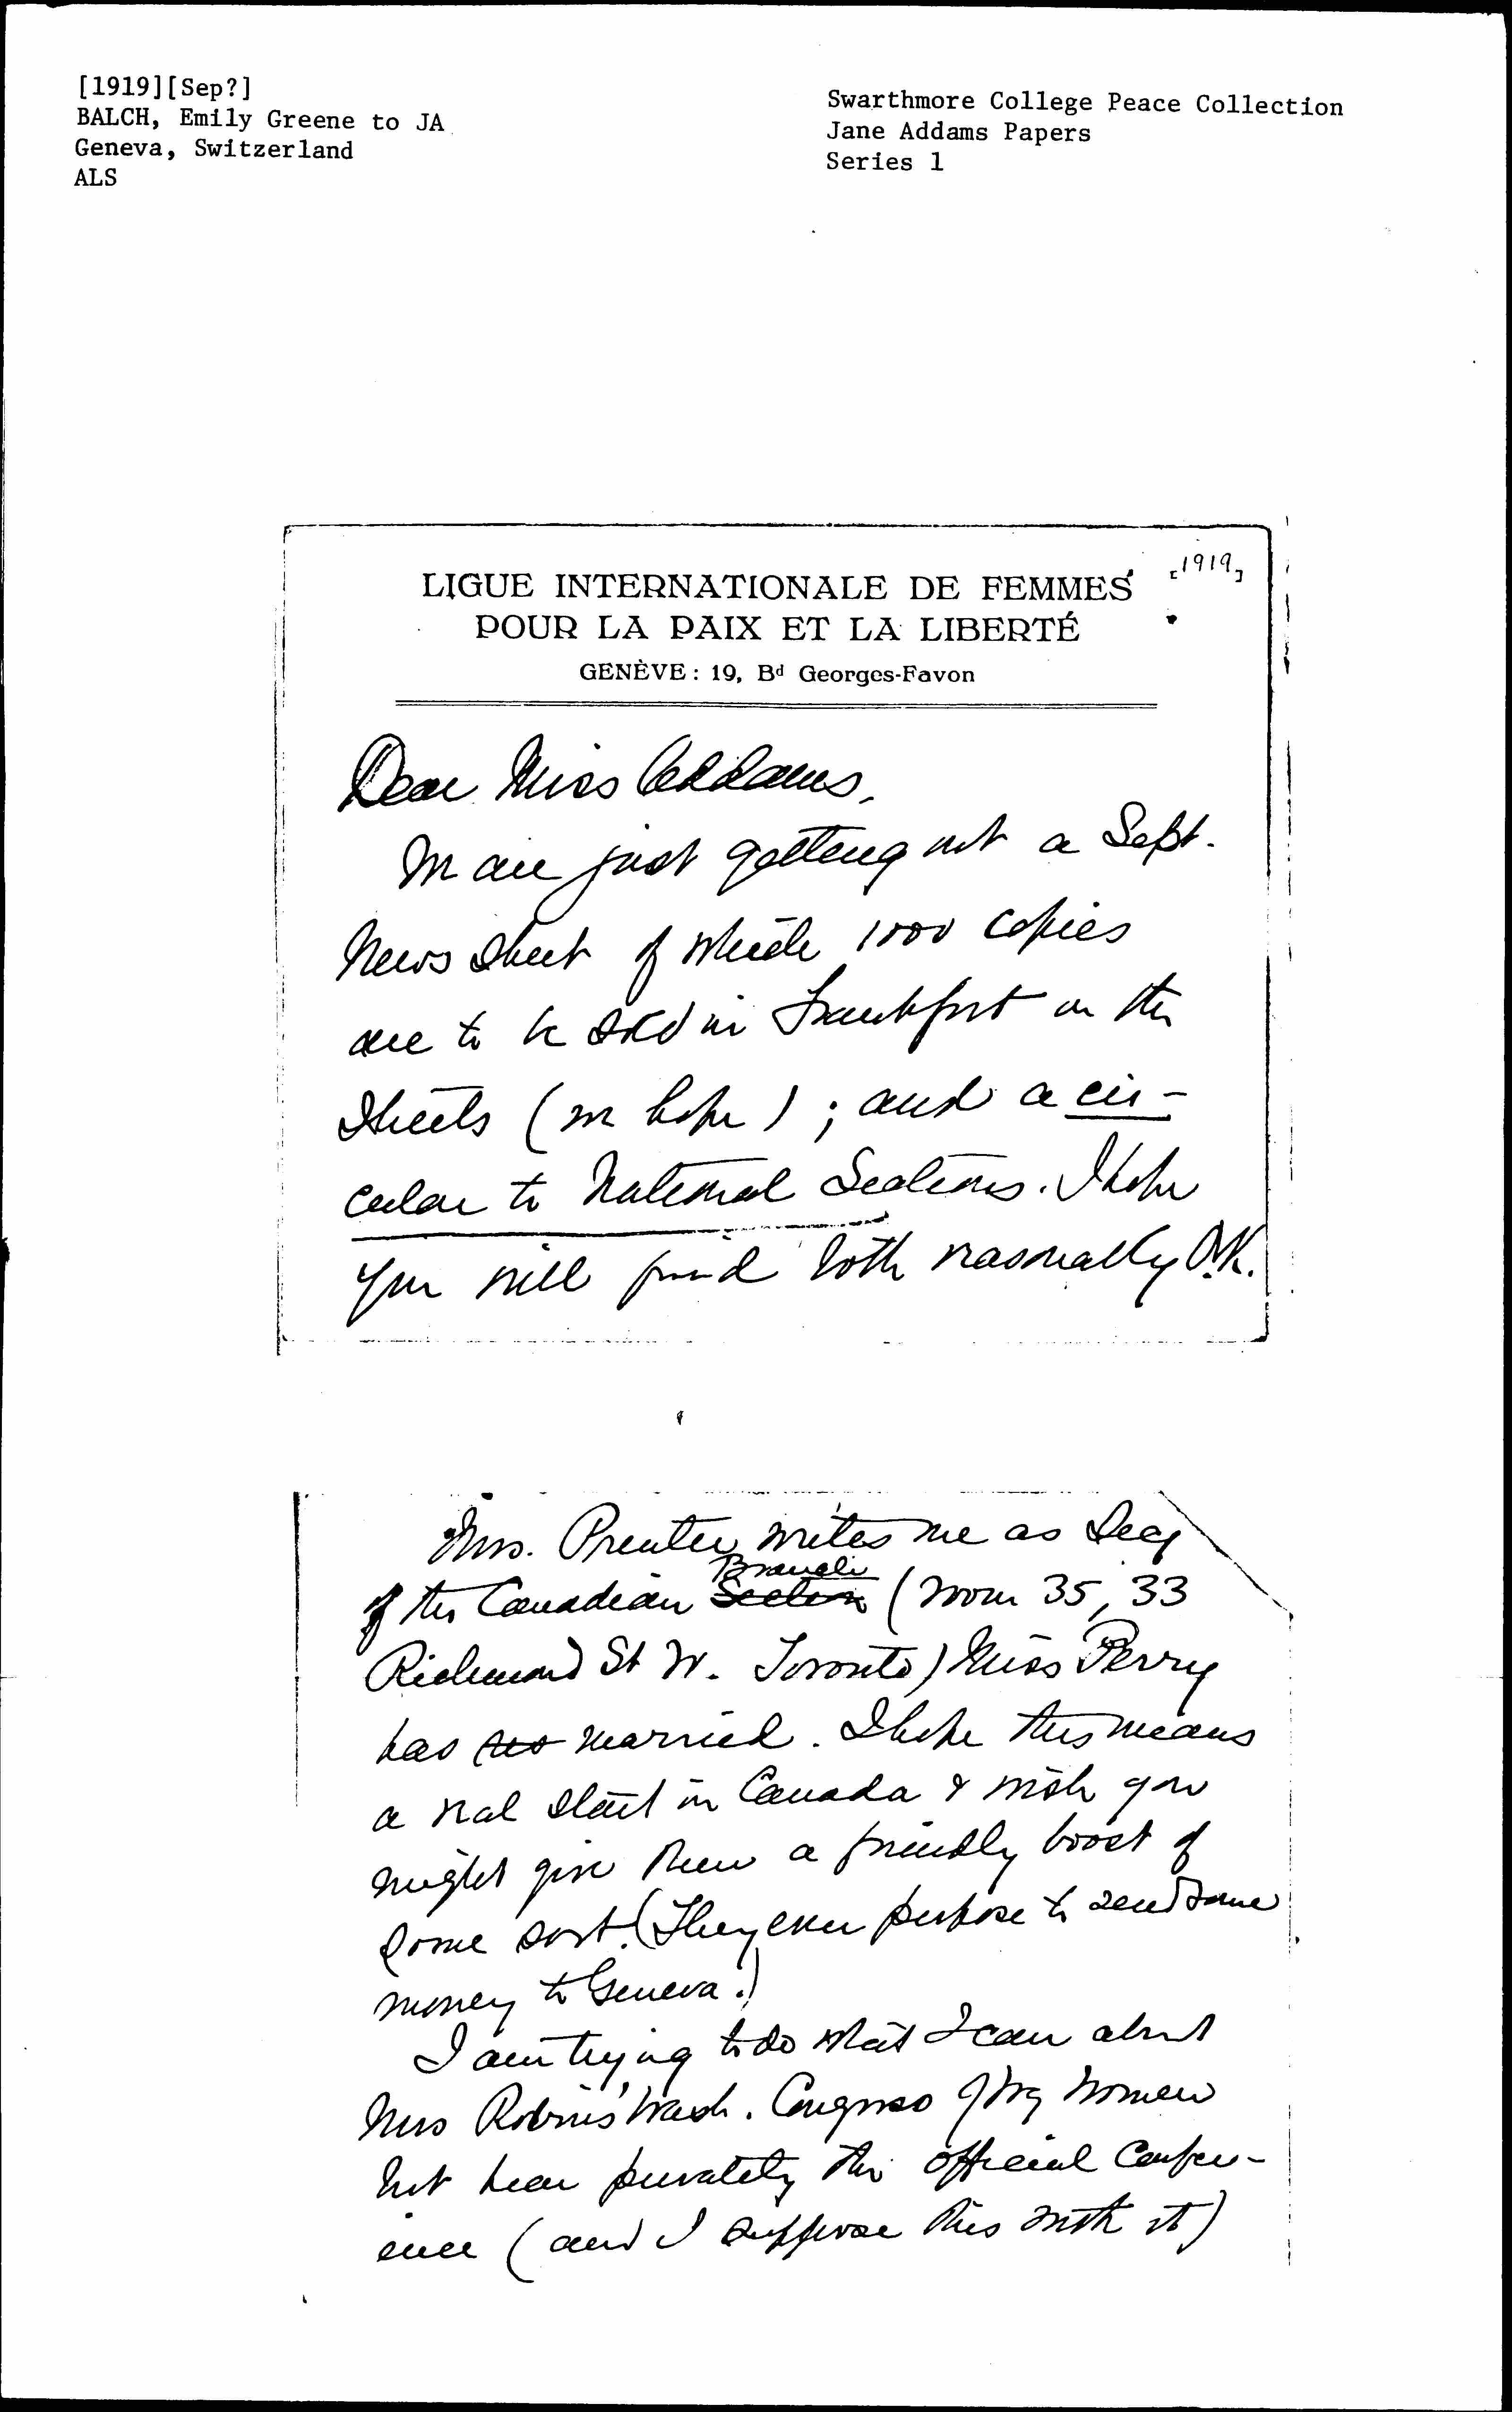 [1919][Sep?]
BALCH, Emily Greene to JA
Geneva, Switzerland
ALS
Swarthmore College Peace Collection
Jane Addams Papers
Series 1
[1919]
LIGUE INTERNATIONALE DE FEMMES
POUR LA PAIX ET LA LIBERTÉ
GENÈVE : 19, Bd Georges-Favon
Dear Miss Addams,
We are just getting out a Sept.
News Sheet of which 1000 copies
are to be sold in Frankfort on the
Streets (we hope) ; and a cir-
cular to National Sections. I hope
you will find both reasonably O.K.
Mrs. Prenter writes me as Secy
of the Canadian Section Branch (room 35, 33
Richmond St W. Toronto) Miss Perry
has married. I hope this means
a real start in Canada & wish you
might give them a friendly boost of
some sort. (They even purpose to send some
money to Geneva.)
I am trying to do what I can about
Mrs Robins' Wash. Congress of Wg Women
but hear privately the official Confer-
ence (and I suppose this with it)